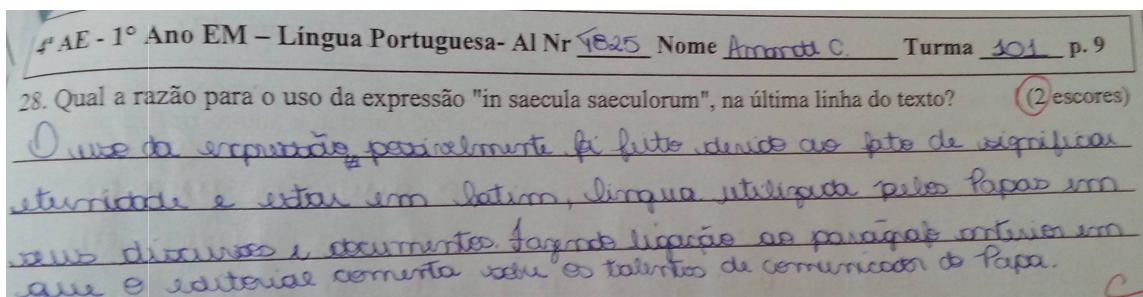 4ª AE - 1° Ano EM – Língua Portuguesa- Al Nr 4825 Nome Amanda C. Turma 101 p. 9
28. Qual a razão para o uso da expressão "in saecula saeculorum", na última linha do texto? (2 escores)
O uso da expressão, possivelmente foi feito devido ao fato de significar
eternidade e estar em latim, língua utilizada pelos Papas em
seus discursos e documentos, fazendo ligação ao parágrafo anterior em
que o editorial comenta sobre os talentos de comunicador do Papa.
C